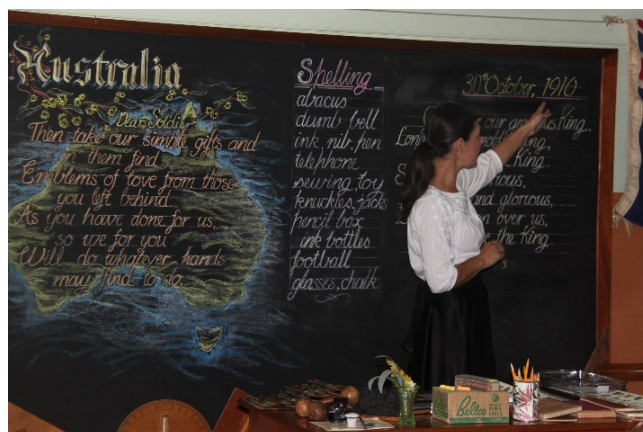 Australia
Dear Soldier
Then take our simple gifts and
in them find
Emblems of love from those
you left behind.
As you have done for us,
so we for you
Will do whatever hands
may find to do.
Spelling
abacus
dumb bell
ink, nib, pen
telephone
sewing, toy
knuckles, jacks
pencil box
ink bottles
football
glasses, chalk
30th October, 1910
our gracious King,
Long
King.
and glorious,
over us,
the King.